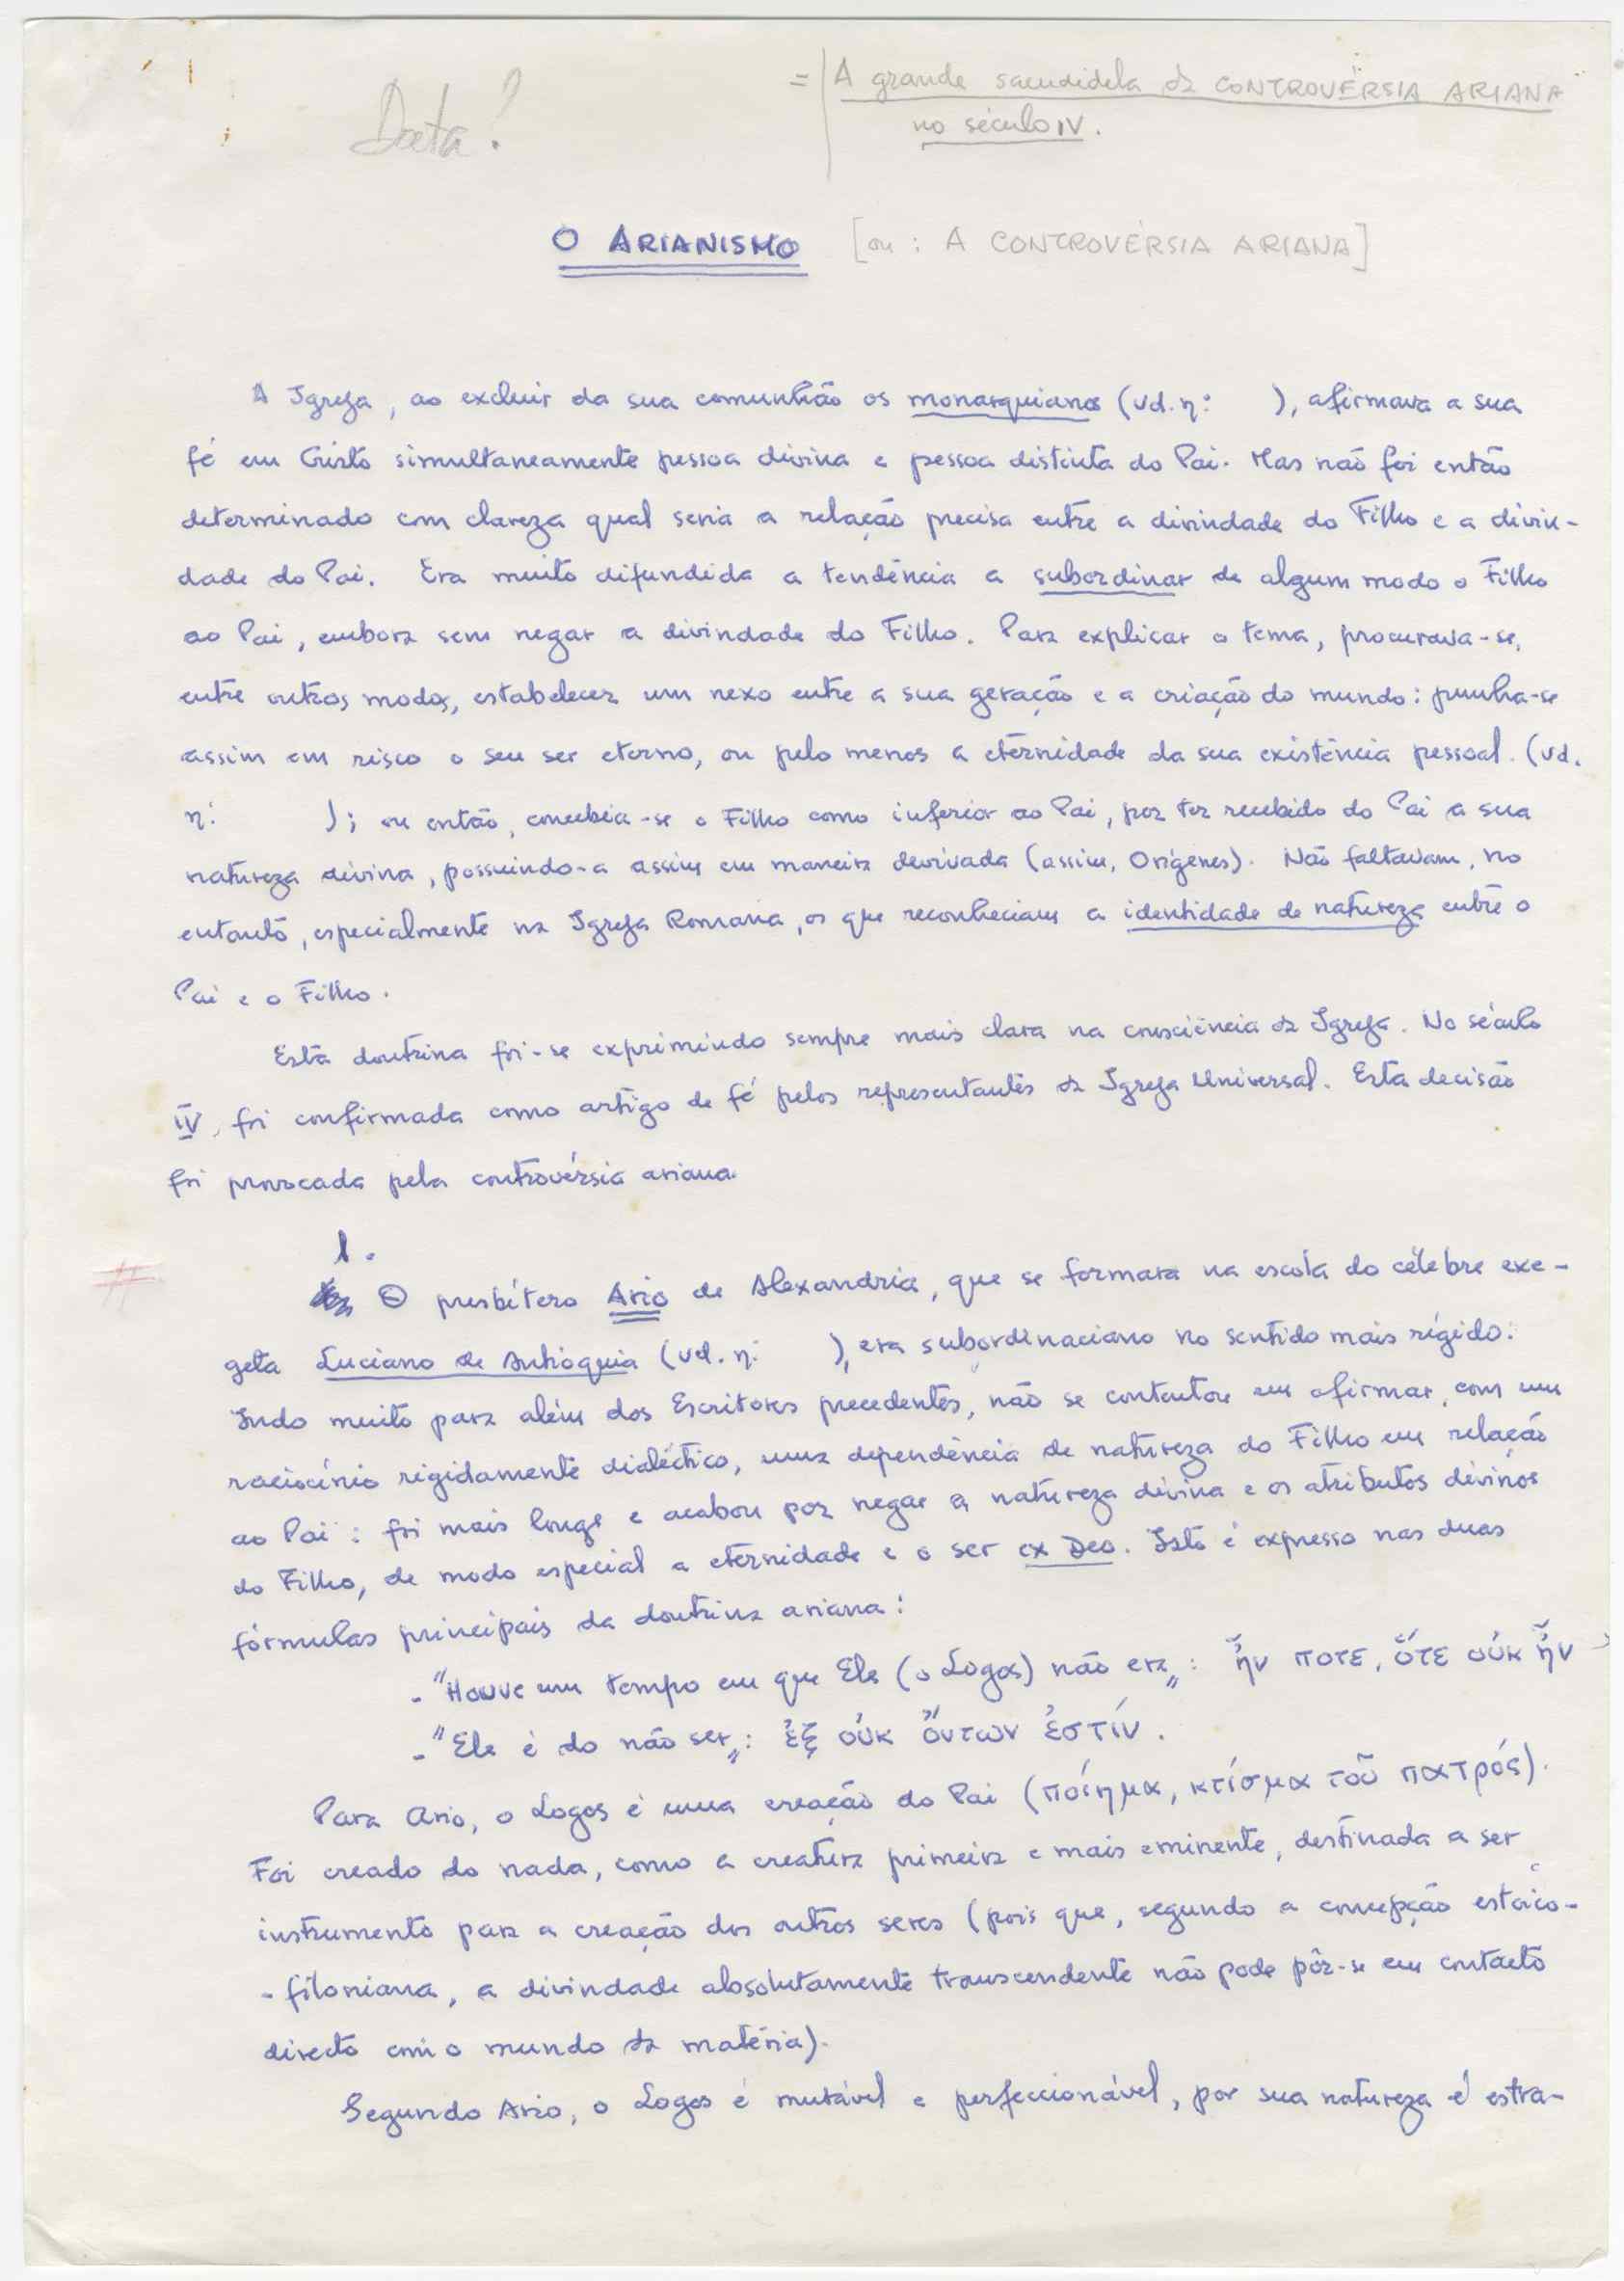 = | A grande sacudidela da CONTROVÉRSIA ARIANA
no século IV.
Data?
O ARIANISMO [ou: A CONTROVÉRSIA ARIANA]
A Igreja, ao excluir da sua comunhão os monarquianos (vd. n: ), afirmava a sua
fé em Cristo simultaneamente pessoa divina e pessoa distinta do Pai. Mas não foi então
determinado com clareza qual seria a relação precisa entre a divindade do Filho e a divin-
dade do Pai. Era muito difundida a tendência a subordinar de algum modo o Filho
ao Pai, embora sem negar a divindade do Filho. Para explicar o tema, procurava-se,
entre outros modos, estabelecer um nexo entre a sua geração e a criação do mundo: punha-se
assim em risco o seu ser eterno, ou pelo menos a eternidade da sua existência pessoal. (vd.
n: ); ou então, concebia-se o Filho como inferior ao Pai, por ter recebido do Pai a sua
natureza divina, possuindo-a assim em maneira derivada (assim, Orígenes). Não faltavam, no
entanto, especialmente na Igreja Romana, os que reconheciam a identidade de natureza entre o
Pai e o Filho.
Esta doutrina foi-se exprimindo sempre mais clara na consciência da Igreja. No século
IV, foi confirmada como artigo de fé pelos representantes da Igreja Universal. Esta decisão
foi provocada pela controvérsia ariana.
1.
# O presbítero Ario de Alexandria, que se formara na escola do célebre exe-
geta Luciano de Antioquia (vd. n: ), era subordinaciano no sentido mais rígido.
Indo muito para além dos Escritores precedentes, não se contentou em afirmar, com um
raciocínio rigidamente dialéctico, uma dependência de natureza do Filho em relação
ao Pai: foi mais longe e acabou por negar a natureza divina e os atributos divinos
do Filho, de modo especial a eternidade e o ser ex Deo. Isto é expresso nas duas
fórmulas principais da doutrina ariana:
- "Houve um tempo em que Ele (o Logos) não era": ἦν ποτε, ὅτε οὐκ ἦν
- "Ele é do não ser": ἐξ οὐκ ὄντων ἐστίν.
Para Ario, o Logos é uma creação do Pai (ποίημα, κτίσμα τοῦ πατρός).
Foi creado do nada, como a creatura primeira e mais eminente, destinada a ser
instrumento para a creação dos outros seres (pois que, segundo a concepção estóico-
-filoniana, a divindade absolutamente transcendente não pode pôr-se em contacto
directo com o mundo da matéria).
Segundo Ario, o Logos é mutável e perfeccionável, por sua natureza é estra-